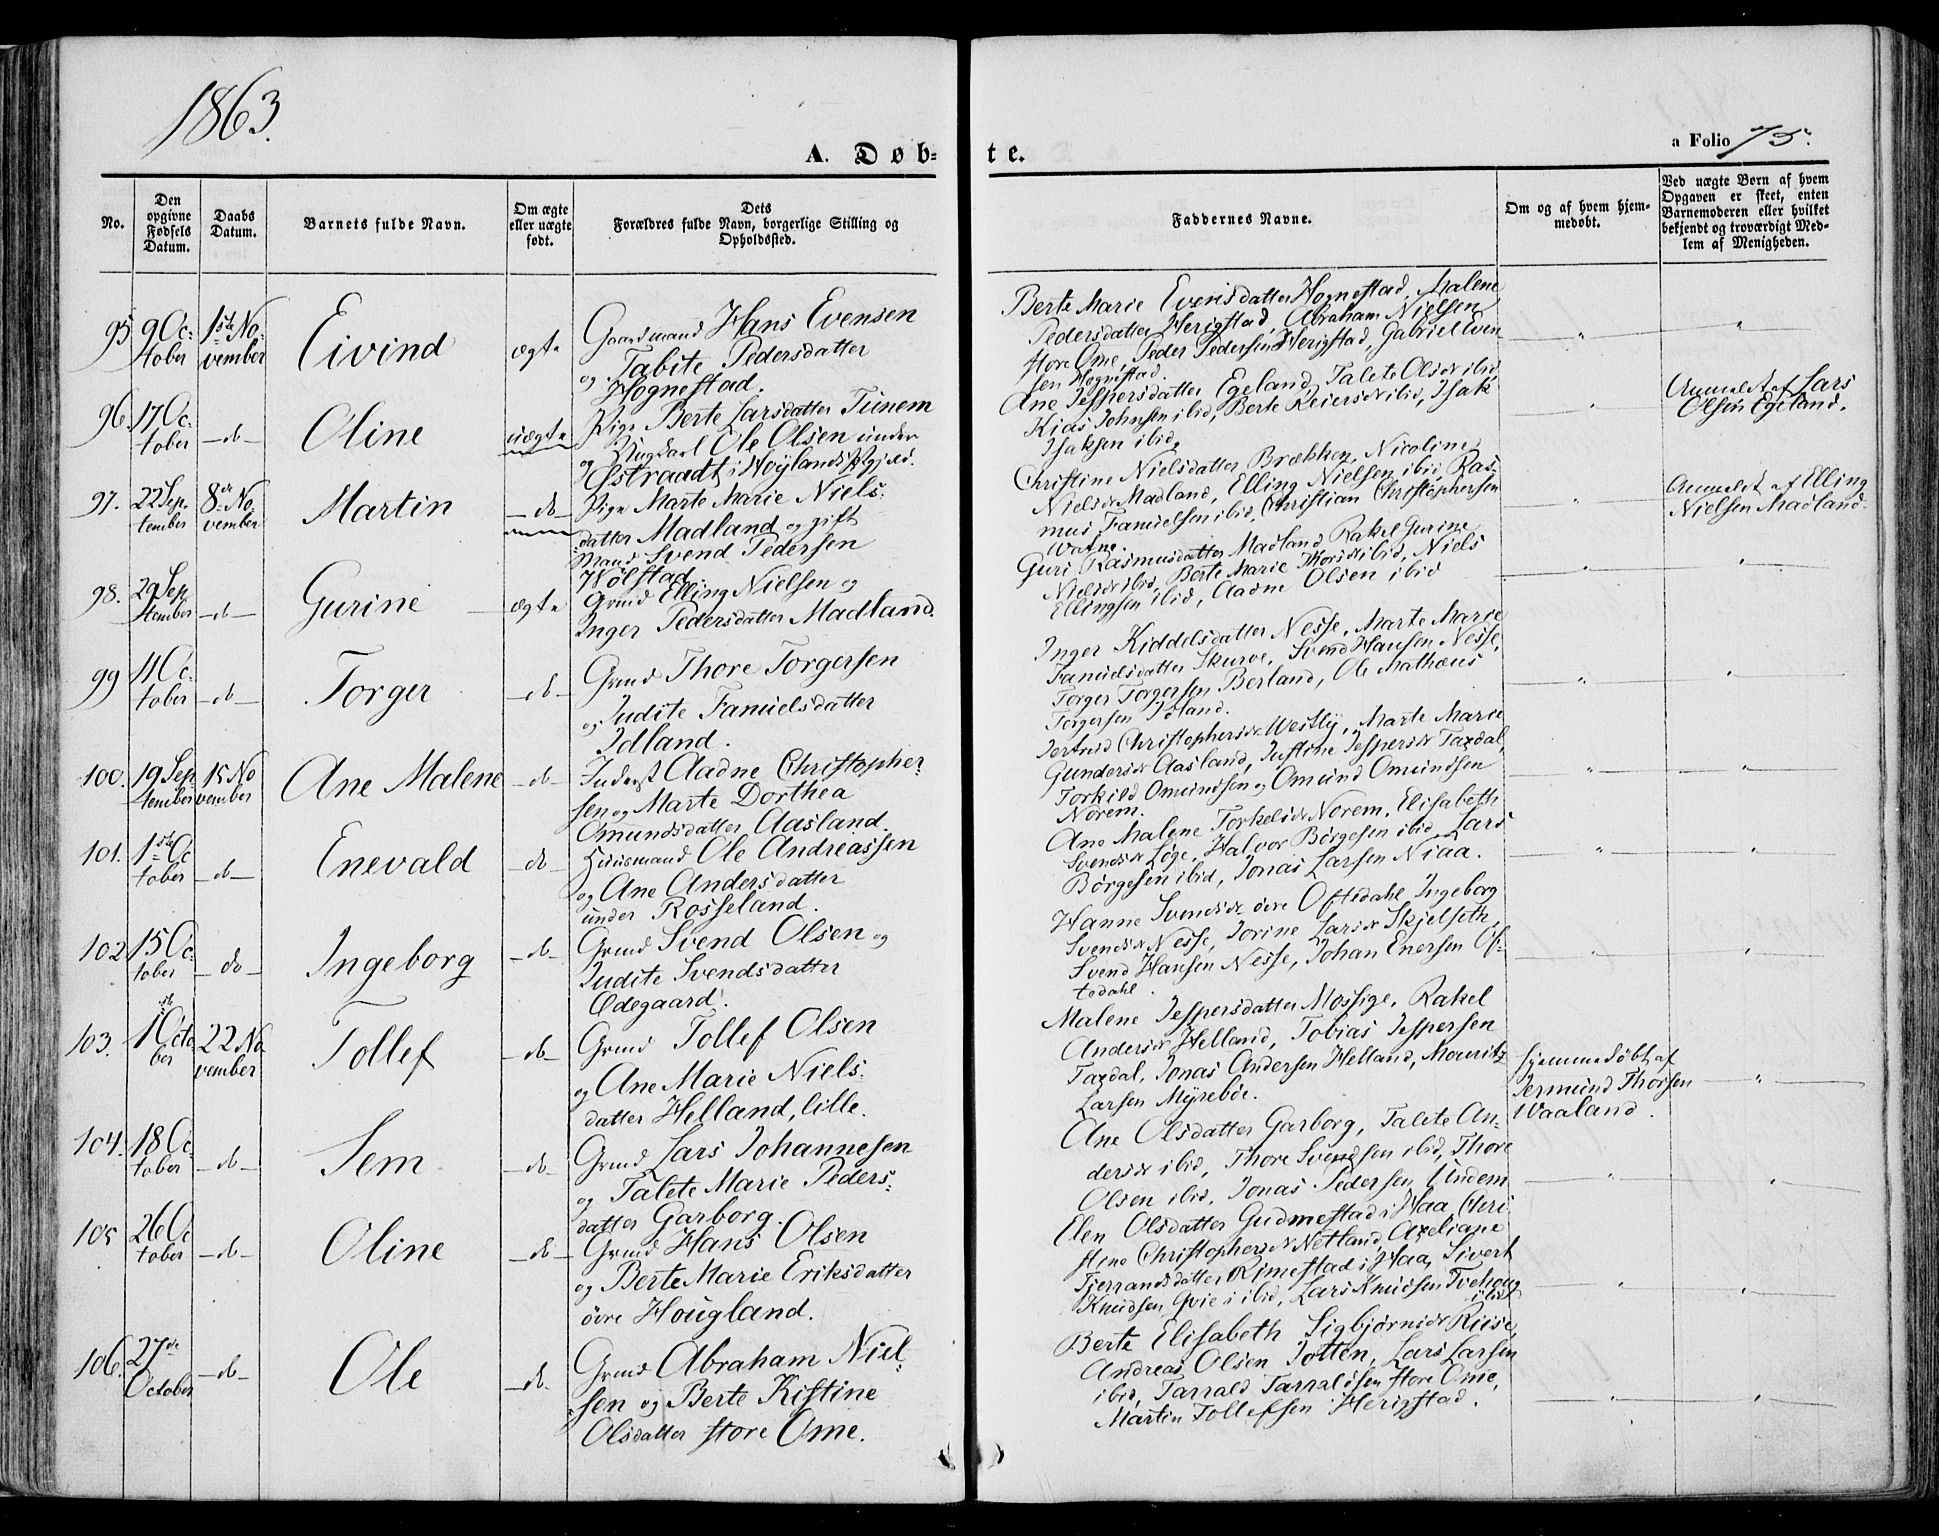 1863.
A. Døb-
te.
a Folio 75.
No.
Den opgivne Fødsels Datum.
Daabs Datum.
Barnets fulde Navn.
Om ægte eller uægte født.
Dets Forældres fulde Navn, borgerlige Stilling og Opholdssted.
Faddernes Navne.
Om og af hvem hjem-
medøbt.
Ved uægte Børn af hvem
Opgaven er skeet, enten
Barnemoderen eller hvilket
bekjendt og troværdigt Med-
lem af Menigheden.
95 9 Oc-
tober
1ste No-
vember
Eivind
ægte
Gaardmand Hans Evensen
og Tabite Pedersdatter
Hognestad.
Berte Marie Evensdatter Hognestad, Malene
Pedersdatter Herigstad, Abraham Nielsen
store Ome, Peder Pedersen Herigstad, Gabriel Even
sen Hognestad.
96. 17 Oc-
tober
-do-
Oline
uægte
Pige Berte Larsdatter Tunem
og Ungkarl Ole Olsen under
Østraadt i Høylands Pgjeld.
Ane Jespersdatter Egeland, Talete Olsdr ibid,
Kias Johnsen ibid, Berte Reiersdr ibid, Isak
Isaksen ibid.
Anmeldt af Lars
Olsen Egeland.
97. 22 Sep-
tember
8de No-
vember
Martin
-do-
Pige Marte Marie Niels-
datter Madland og gift
Mand Svend Pedersen
Hølstad.
Christine Nielsdatter Brækken, Nicoline
Nielsdr Madland, Elling Nielsen ibid, Ras-
mus Samuelsen ibid, Christian Christophersen
Watne.
Anmeldt af Elling
Nielsen Madland.
98. 29 Sep-
tember
-do-
Gurine
ægte
Grmd Elling Nielsen og
Inger Pedersdatter Madland.
Guri Rasmusdatter Madland, Rakel Gurine
Nielsdr ibid, Berte Marie Thorsdr ibid, Niels
Ellingsen ibid, Aadne Olsen ibid
99 4 Oc-
tober
-do-
Torger
-do-
Grmd Thore Torgersen
og Judite Samuelsdatter
Idland.
Inger Kiddelsdatter Nesse, Marte Marie
Samuelsdatter Skurve, Svend Hansen Nesse,
Torger Torgersen Berland, Ole Mathæus
Torgersen Idland.
100. 19 Sep-
tember
15 No
vember
Ane Malene
-do-
Inderst Aadne Christopher-
sen og Marte Dorthea
Omundsdatter Aasland.
Jertrud Christophersdr Westly, Marte Marie
Gundersdr Aasland, Justine Jespersdr Taxdal,
Torkild Omundsen og Omund Omundsen
Norem.
101. 1ste Oc
tober
-do-
Enevald
-do-
Huusmand Ole Andreassen
og Ane Andersdatter
under Rosseland.
Ane Malene Torkelsdr Norem, Elisabeth
Svendsdr Løge, Halvor Børgesen ibid, Lars
Børgesen ibid, Jonas Larsen Niaa.
102 15 Oc-
tober
-do-
Ingeborg
-do-
Grmd Svend Olsen og
Judite Svendsdatter
Ødegaard.
Hanne Svendsdr øvre Oftedahl, Ingeborg
Svendsdr Nesse, Jorine Larsdr Skjelseth,
Svend Hansen Nesse, Johan Enersen Of-
tedahl.
103. 1ste Octo
ber
22 No
vember
Tollef
-do-
Grmd Tollef Olsen
og Ane Marie Niels-
datter Helland, lille.
Malene Jespersdatter Mossige, Rakel
Andersdr Helland, Tobias Jespersen
Taxdal, Jonas Andersen Helland, Mauritz
Larsen Myrebøe.
Hjemmedøbt af
Jermund Thorsen
Vaaland.
104. 18 Oc
tober
-do-
Sem
-do-
Grmd Lars Johannesen
og Talete Marie Peders-
datter Garborg.
Ane Olsdatter Garborg, Talete An-
dersdr ibid, Thore Svendsen ibid, Thore
Olsen ibid, Jonas Pedersen Undem
105 26 Oc
tober
-do-
Oline
-do-
Grmd Hans Olsen
og Berte Marie Eriksdatter
øvre Hougland.
Elen Olsdatter Gudmestad i Haa, Chri
stine Christophersdr Netland, Axeliane
Tjerrandsdatter Rimestad i Haa, Sivert
Knudsen Qvie i ibid, Lars Knudsen Tvehoug
ibid
106. 27de
October
-do-
Ole
-do-
Grmd Abraham Niel-
sen og Berte Kistine
Olsdatter store Ome.
Berte Elisabeth Sigbjørnsdr Riise,
Andreas Olsen Jotten, Lars Larsen
ibid, Tarrald Tarraldsen store Ome,
Martin Tollefsen Herigstad.